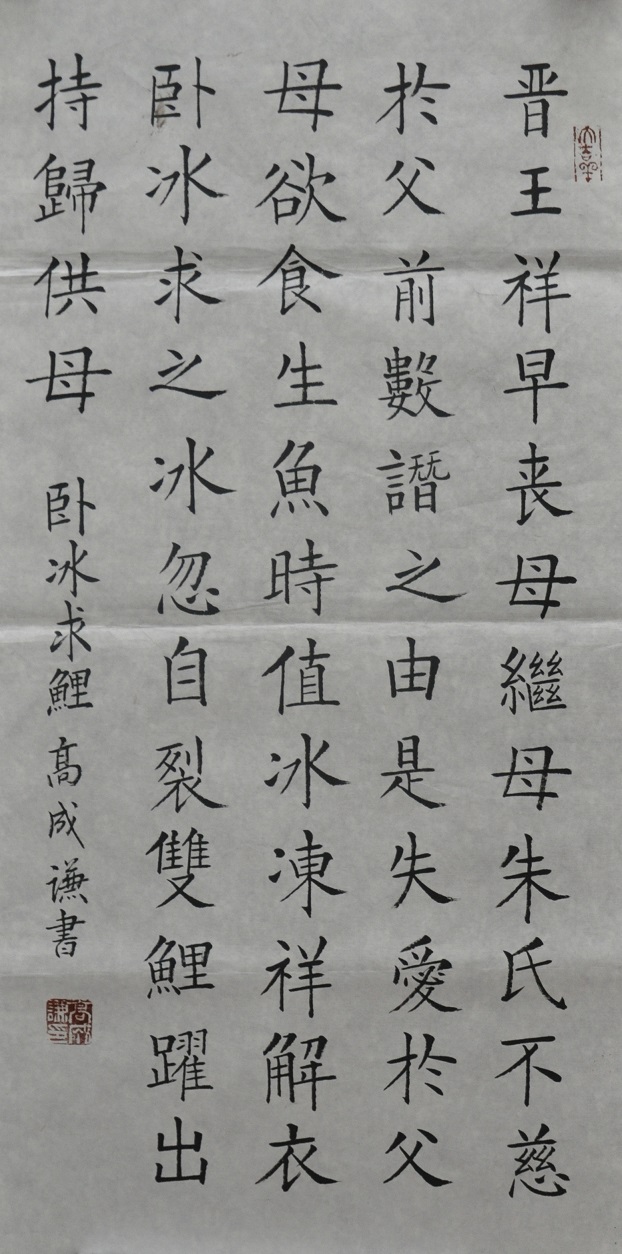 晋王祥早丧母繼母朱氏不慈
於父前數譖之由是失愛於父
母欲食生魚時值冰凍祥解衣
卧冰求之冰忽自裂雙鯉躍出
持歸供母
卧冰求鯉 高成謙書